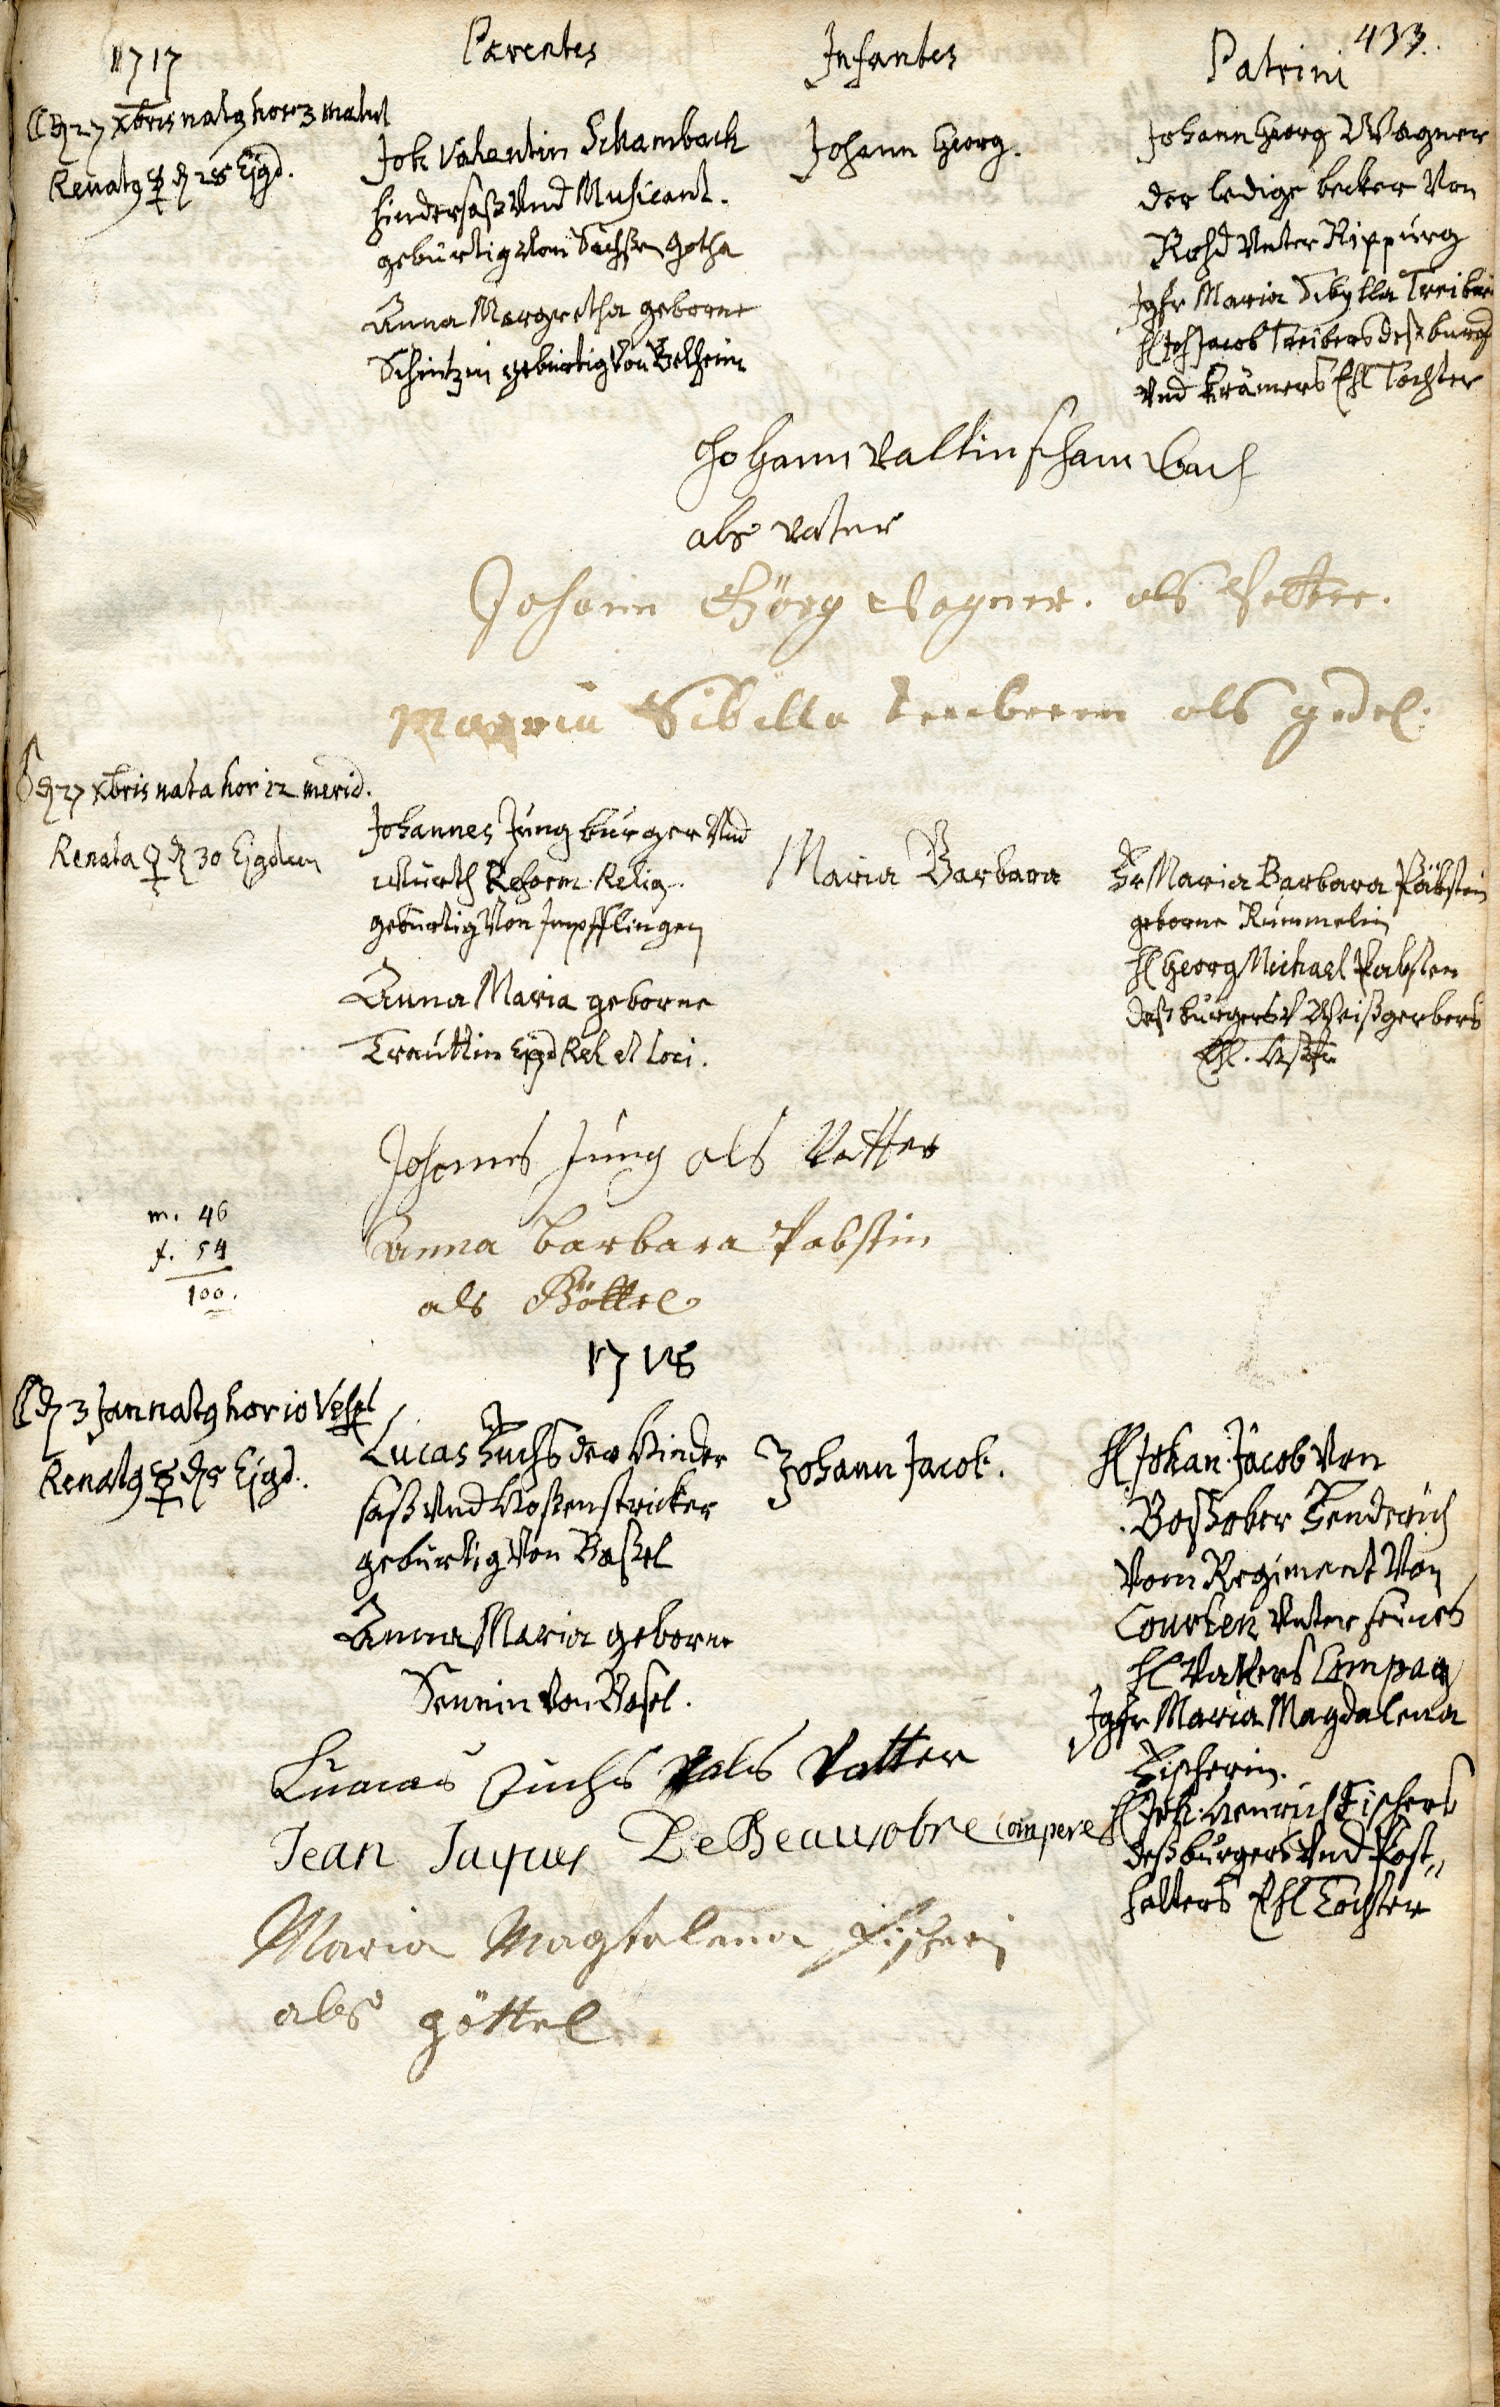 433.
1717
Parentes
Infantes
Patrini
☾ d 27 Xbris natg hor 3 matut
Renatg ☿ d 28 Ejgd.
Joh Valentin Schambach
hindersaß Und Musicant.
gebürtig Von Sachsen Gotha
Anna Margretha geborne
gebürtig Von Belheim
Johann Georg.
Johann Georg Wagner
der ledige becker Von
Rohd Unter Rippurg
Jgfr Maria Sibylla Treiberin
H Joh Jacob Treibers deß burg
Und Krämers Ehl Tochter
Johann Valtin schambach
als vater
Johann Görg Wagner. als Petter.
Maria Sibilla treiberin als gedel.
d 27 Xbris nata hor 12 merid.
Renata ♀ d 30 Ejgdem
Johannes Jung burger Und
Würth Reform. Relig.
gebürtig Von Impfflingen
Anna Maria geborne
Trauttin Ejgd Rel et loci.
Maria Barbara
Fr Maria Barbara Päbstin
geborne Rummelin
H Georg Michael Pabsten
deß burgers V Weißgerbers
Ehl.
Johannes Jung als Vatter
Anna barbara Pabstin
als Göttel
m. 46
f. 54
100.
1718
☾ d 3 Jan natg hor 10 Vesp
Renatg ☿ d 5 Ejgd.
Lucas Fuchs der Hinder
saß Und Hoßenstricker
gebürtig Von Baßel
Anna Maria geborne
Sennin Von Basel.
Johann Jacob.
H Johan Jacob Von
Boßober Fendrich
Vom Regiment Von
Courten Unter seines
H Vatters Compag
Jgfr Maria Magdalena
Fischerin.
H Joh. Henrich Fischers
deß burgers Und Post„
halters Ehl Tochter
Lucas Fuchs als Vatter
Jean Jaques De Beausobre compere
Maria Magtalena Fischerin
als göttel